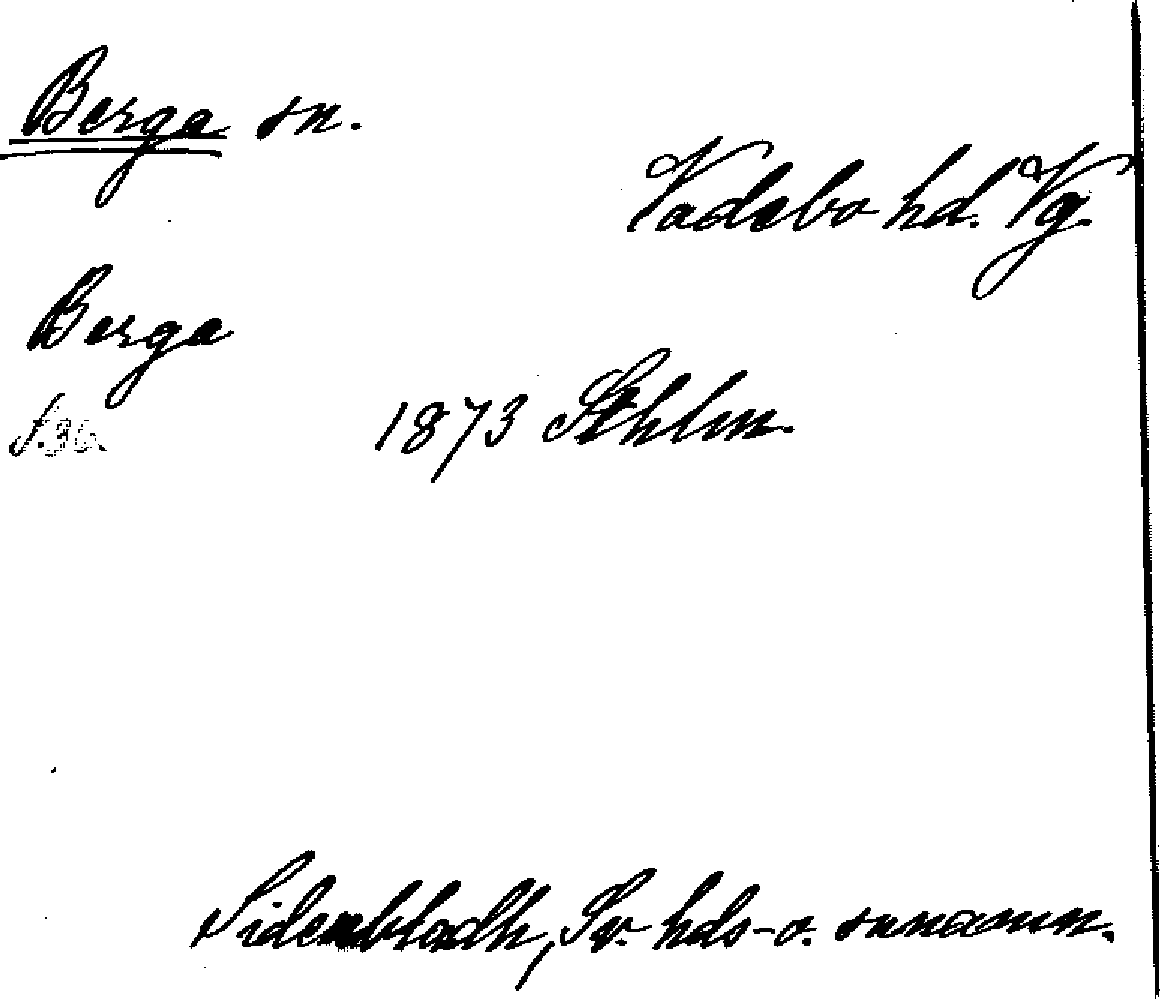 Berga sn.
Vadsbo hd. Vg.
Berga
s. 36.
1873 Sthlm.
Sidenbladh, Sv. hds- o. snnamn.